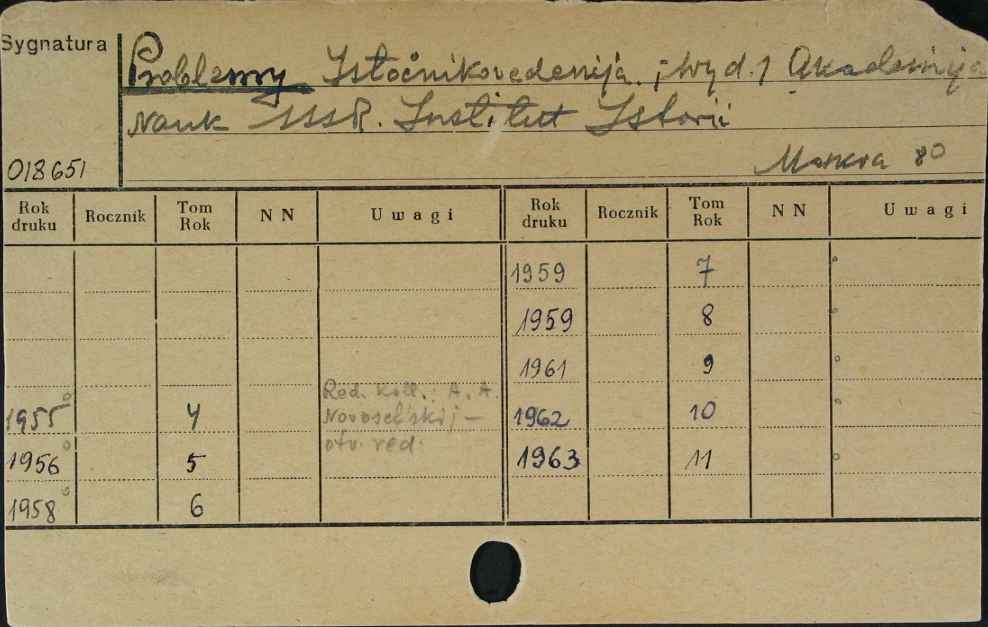 Sygnatura
Problemy Istočnikovedenija. ; wyd. / Akademija
Nauk SSSR. Institut Istorii
018651
Moskva 8°
Rok druku Rocznik Tom Rok NN Uwagi Rok druku Rocznik Tom Rok NN Uwagi
1959 7
1959 8
1961 9
Red. koll.: A. A.
1955 4 Novosel'skij — 1962 10
otv. red.
1956 5 1963 11
1958 6